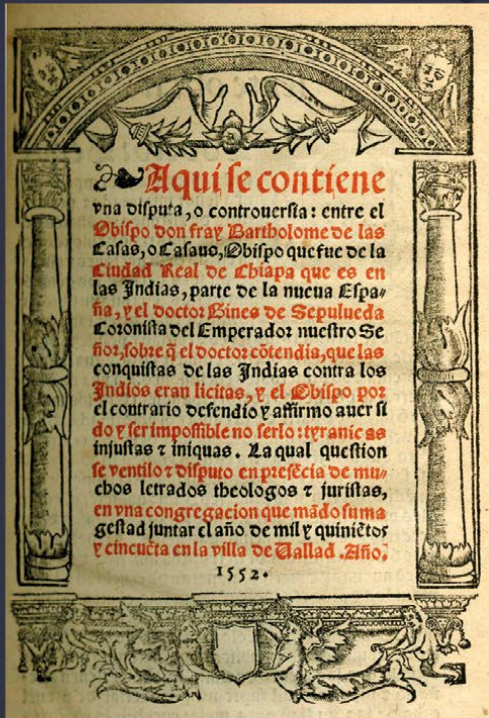 Aqui se contiene
vna disputa, o controuersia: entre el
Obispo don fray Bartholome de las
Casas, o Casaus, Obispo que fue de la
Ciudad Real de Chiapa que es en
las Indias, parte de la nueua Espa-
ña, y el doctor Gines de Sepulueda
Coronista del Emperador nuestro Se
ñor, sobre q̃ el doctor cõtendia, que las
conquistas de las Indias contra los
Indios eran licitas, y el Obispo por
el contrario defendio y affirmo auer si
do y ser impossible no serlo: tyranicas
injustas ⁊ iniquas. La qual question
se ventilo ⁊ disputo en presẽcia de mu-
chos letrados theologos ⁊ juristas,
en vna congregacion que mãdo su ma
gestad juntar el año de mil y quiniẽtos
y cincuẽta en la villa de Uallad. Año.
1552.